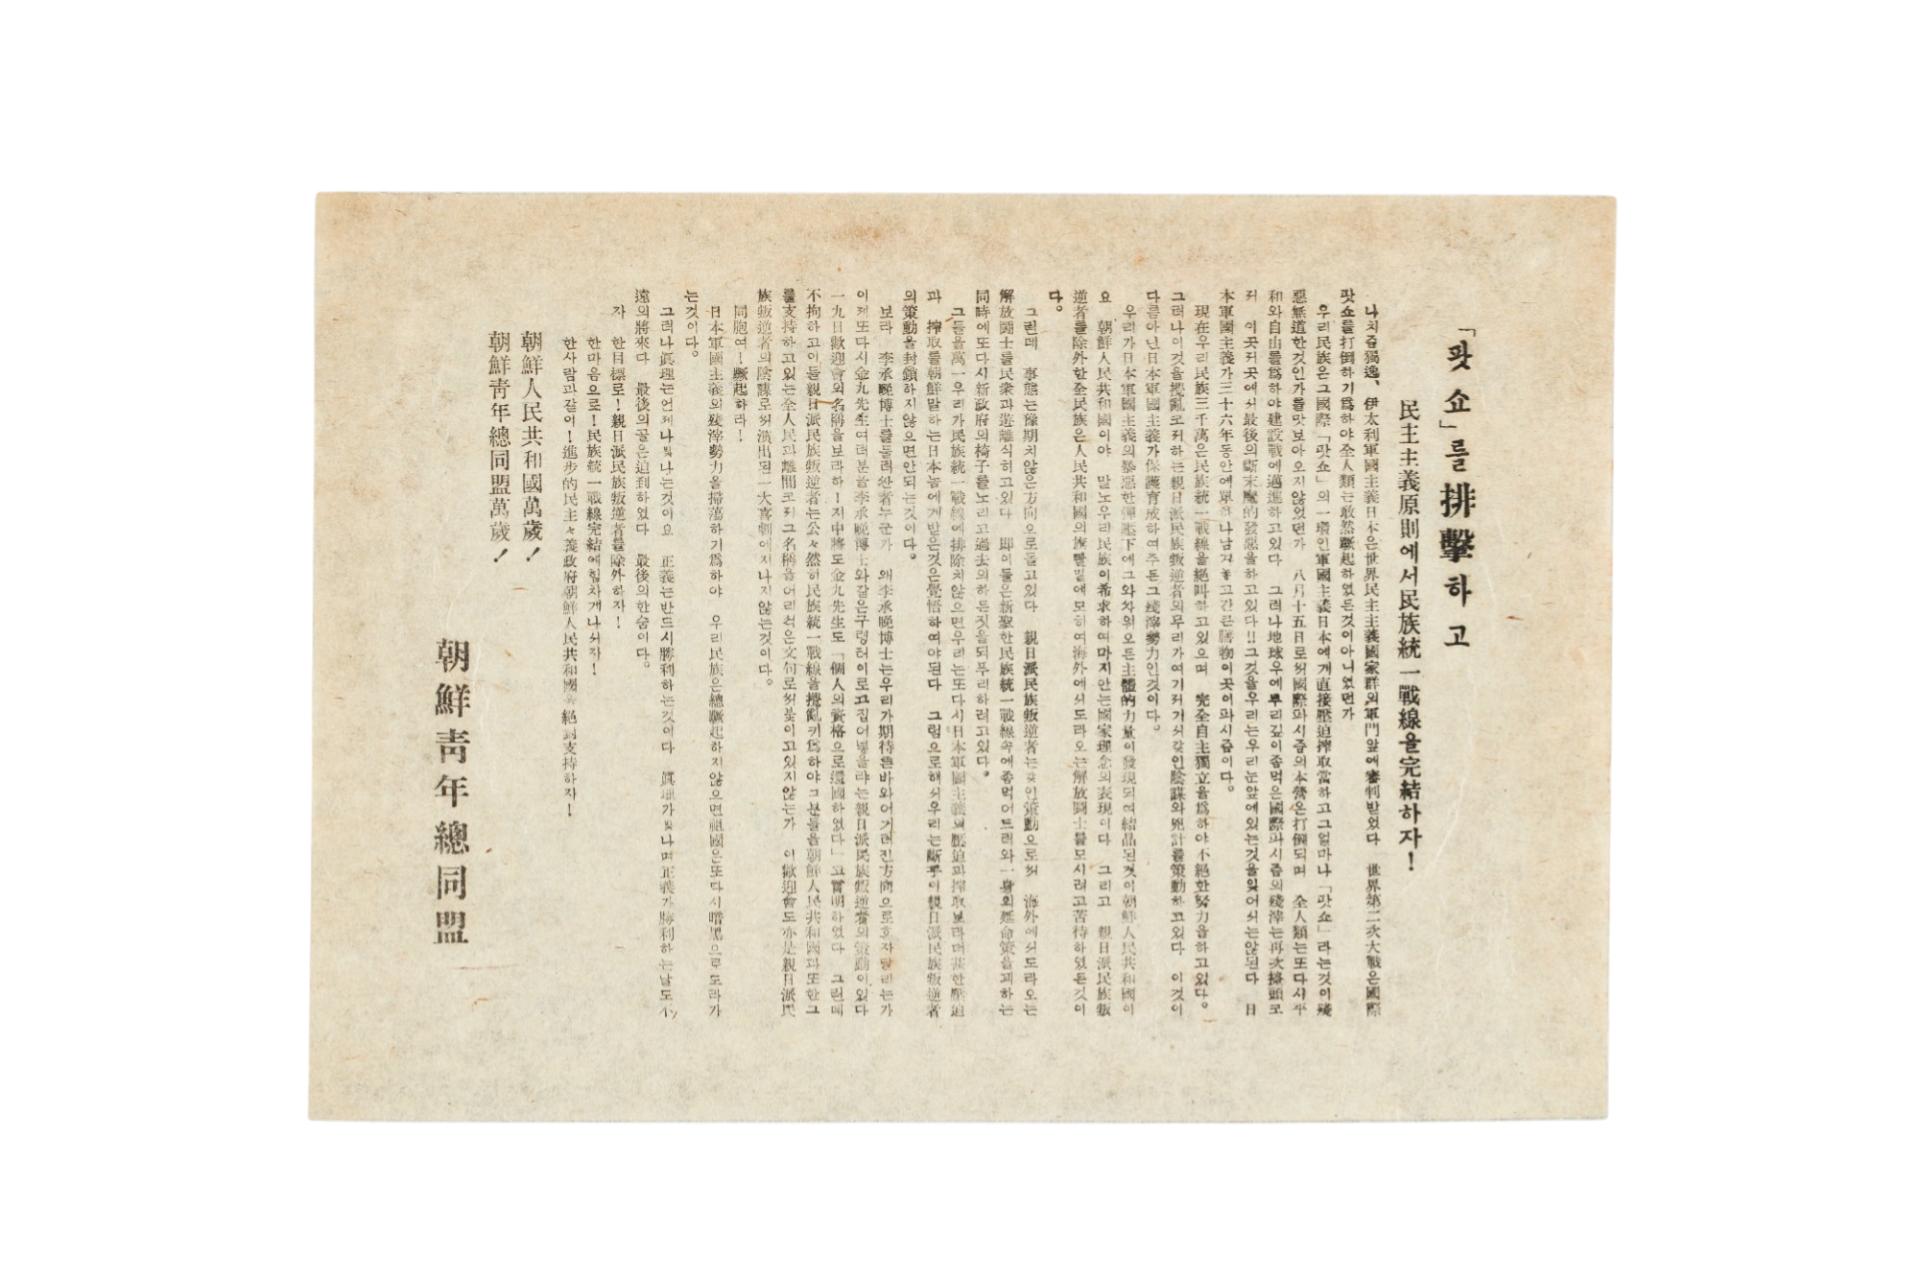 「팟쇼」를排擊하고
民主主義原則에서民族統一戰線을完結하자!
나치즘獨逸、伊太利軍國主義日本은世界民主主義國家群의軍門앞에審判받었다 世界第二次大戰은國際
팟쇼를打倒하기爲하야全人類는敢然蹶起하였든것이아니였던가
우리民族은그國際「팟쇼」의一環인軍國主義日本에게直接壓迫搾取當하고그얼마나「팟쇼」라는것이殘
惡無道한것인가를맛보아오지않었었던가 八月十五日로써國際파시즘의本營은打倒되며 全人類는또다시平
和와自由를爲하야建設戰에邁進하고있다 그러나地球우에뿌리깊이좀먹은國際파시즘의殘滓는再次擡頭코
저 이곳저곳에서最後의斷末魔的發惡을하고있다!!그것을우리는우리눈앞에있는것을잊어서는않된다 日
本軍國主義가三十六年동안에單하나남겨놓고간膳物이곳이파시즘이다。
現在우리民族三千萬은民族統一戰線을絕叫하고있으며 完全自主獨立을爲하야不絕한努力을하고있다。
그러나이것을攪亂코저하는親日派民族叛逆者의무리가여기저기서갖인陰謀와兇計를策動하고있다 이것이
다름아닌日本軍國主義가保護育成하여주든그殘滓勢力인것이다。
우리가日本軍國主義의暴惡한彈壓下에그와싸워오든主體的力量이發現되여結晶된것이朝鮮人民共和國이
요 朝鮮人民共和國이야 말노우리民族이希求하여마지안는國家理念의表現이다 그리고 親日派民族叛
逆者를除外한全民族은人民共和國의旗빨밑에모히여海外에서도라오는解放鬪士를모시려고苦待하였든것이
다。
그런데 事態는豫期치않은方向으로돌고있다 親日派民族叛逆者는갖인策動으로써 海外에서도라오는
解放鬪士를民衆과遊離식히고있다 即이들은新聖한民族統一戰線속에좀먹어드러와一身의延命策을괴하는
同時에또다시新政府의椅子를노리고過去의하든짓을되푸리하려고있다。
그들을萬一우리가民族統一戰線에排除치않으면우리는또다시日本軍國主義의壓迫과搾取보라더甚한壓迫
과 搾取를朝鮮말하는日本놈에게받은것은覺悟하여야된다 그럼으로해서우리는斷乎이親日派民族叛逆者
의策動을封鎖하지않으면안되는것이다。
보라 李承晩博士를둘러싼者누군가 왜李承晩博士는우리가期待튼바와어거러진方向으로호자달리는가
이제또다시金九先生여러분을李承晩博士와같은구렁허이로고집어넣을랴는親日派民族叛逆者의策動이있다
一九日歡迎會의名稱을보라하!지中將도金九先生도「個人의資格으로還國하였다」고言明하였다 그런데
不拘하고이들親日派民族叛逆者는公々然히民族統一戰線을攪亂키爲하야그분들을朝鮮人民共和國과또한그
를支持하고있는全人民과離間코저그名稱을어리석은文句로써붗이고있지않는가 이歡迎會도亦是親日派民
族叛逆者의陰謀로써演出된一大喜劇에지나지않는것이다。
同胞여!蹶起하라!
日本軍國主義의殘滓勢力을掃蕩하기爲하야 우리民族은總蹶起하지않으면祖國은또다시暗黑으로도라가
는것이다。
그러나眞理는언제나빛나는것이요 正義는반드시勝利하는것이다 眞理가빛나며正義가勝利하는날도不
遠의將來다 最後의골은迫到하였다 最後의한숨이다。
자 한目標로!親日派民族叛逆者를除外하자!
한마음으로!民族統一戰線完結에힘차게나서자!
한사람과같이!進步的民主々義政府朝鮮人民共和國을絕對支持하자!
朝鮮人民共和國萬歲!
朝鮮靑年總同盟萬歲!
朝鮮靑年總同盟